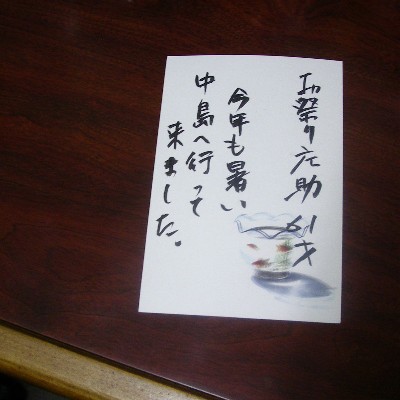 祭り 庄助 61才
今年も暑い
中島へ行って
来ました。